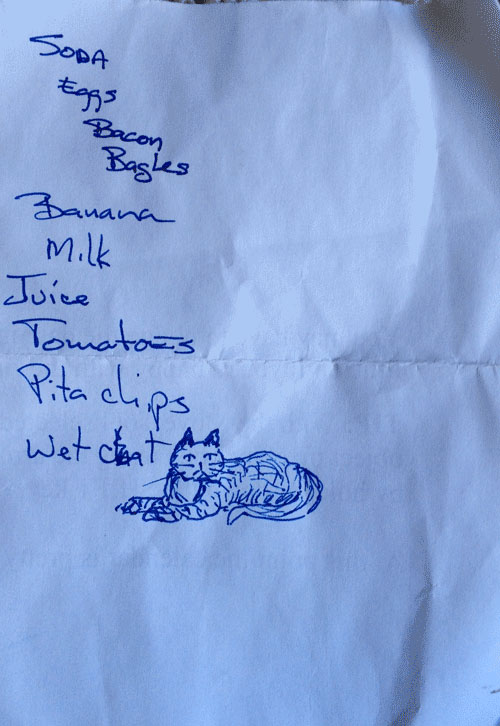 SODA
Eggs
Bacon
Bagles
Banana
Milk
Juice
Tomatoes
Pita chips
Wet cat